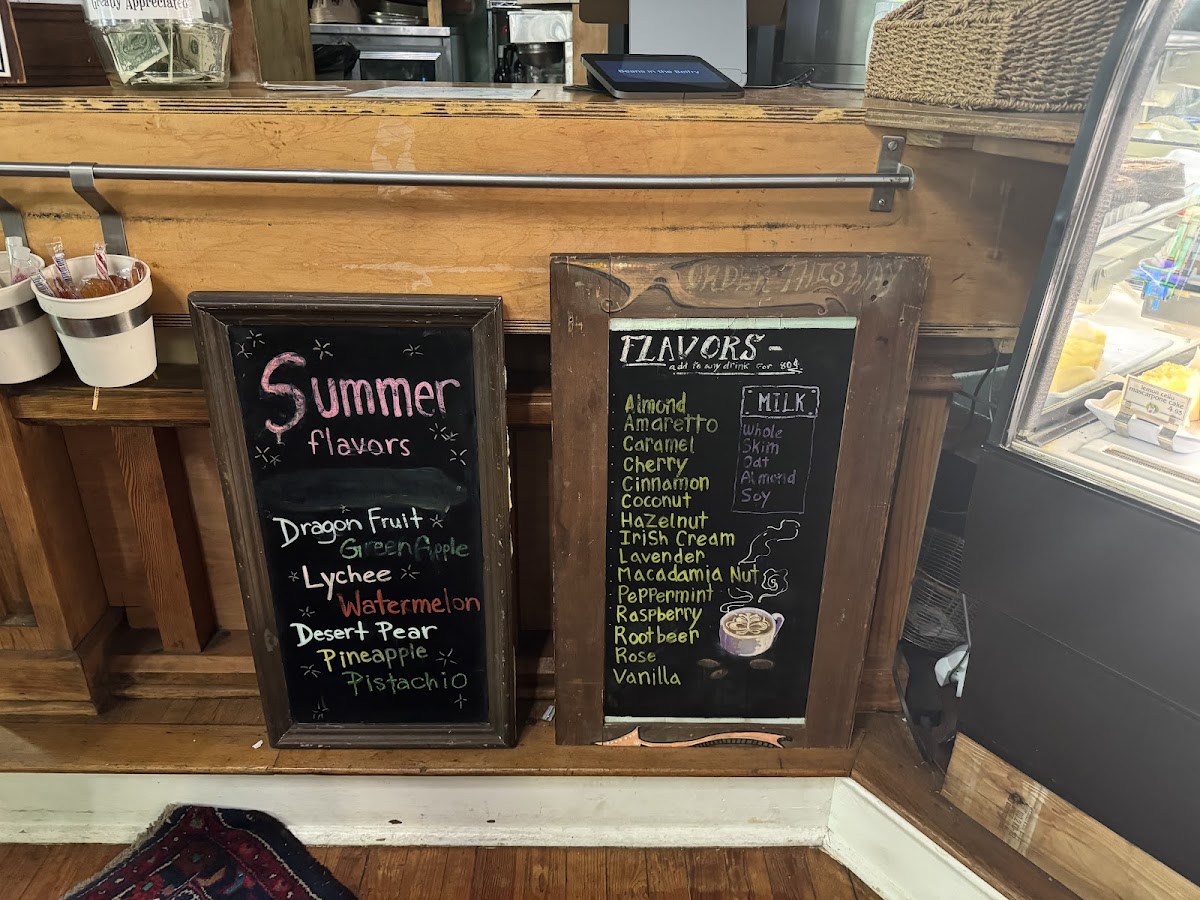 Greatly Appreciated
Beans in the Belfry
ORDER THIS WAY
Summer
flavors
Dragon Fruit
Green Apple
Lychee
Watermelon
Desert Pear
Pineapple
Pistachio
FLAVORS-
add to any drink for 80¢
Almond
Amaretto
Caramel
Cherry
Cinnamon
Coconut
Hazelnut
Irish Cream
Lavender
Macadamia Nut
Peppermint
Raspberry
Rootbeer
Rose
Vanilla
MILK
Whole
Skim
Oat
Almond
Soy
mascarpone cake